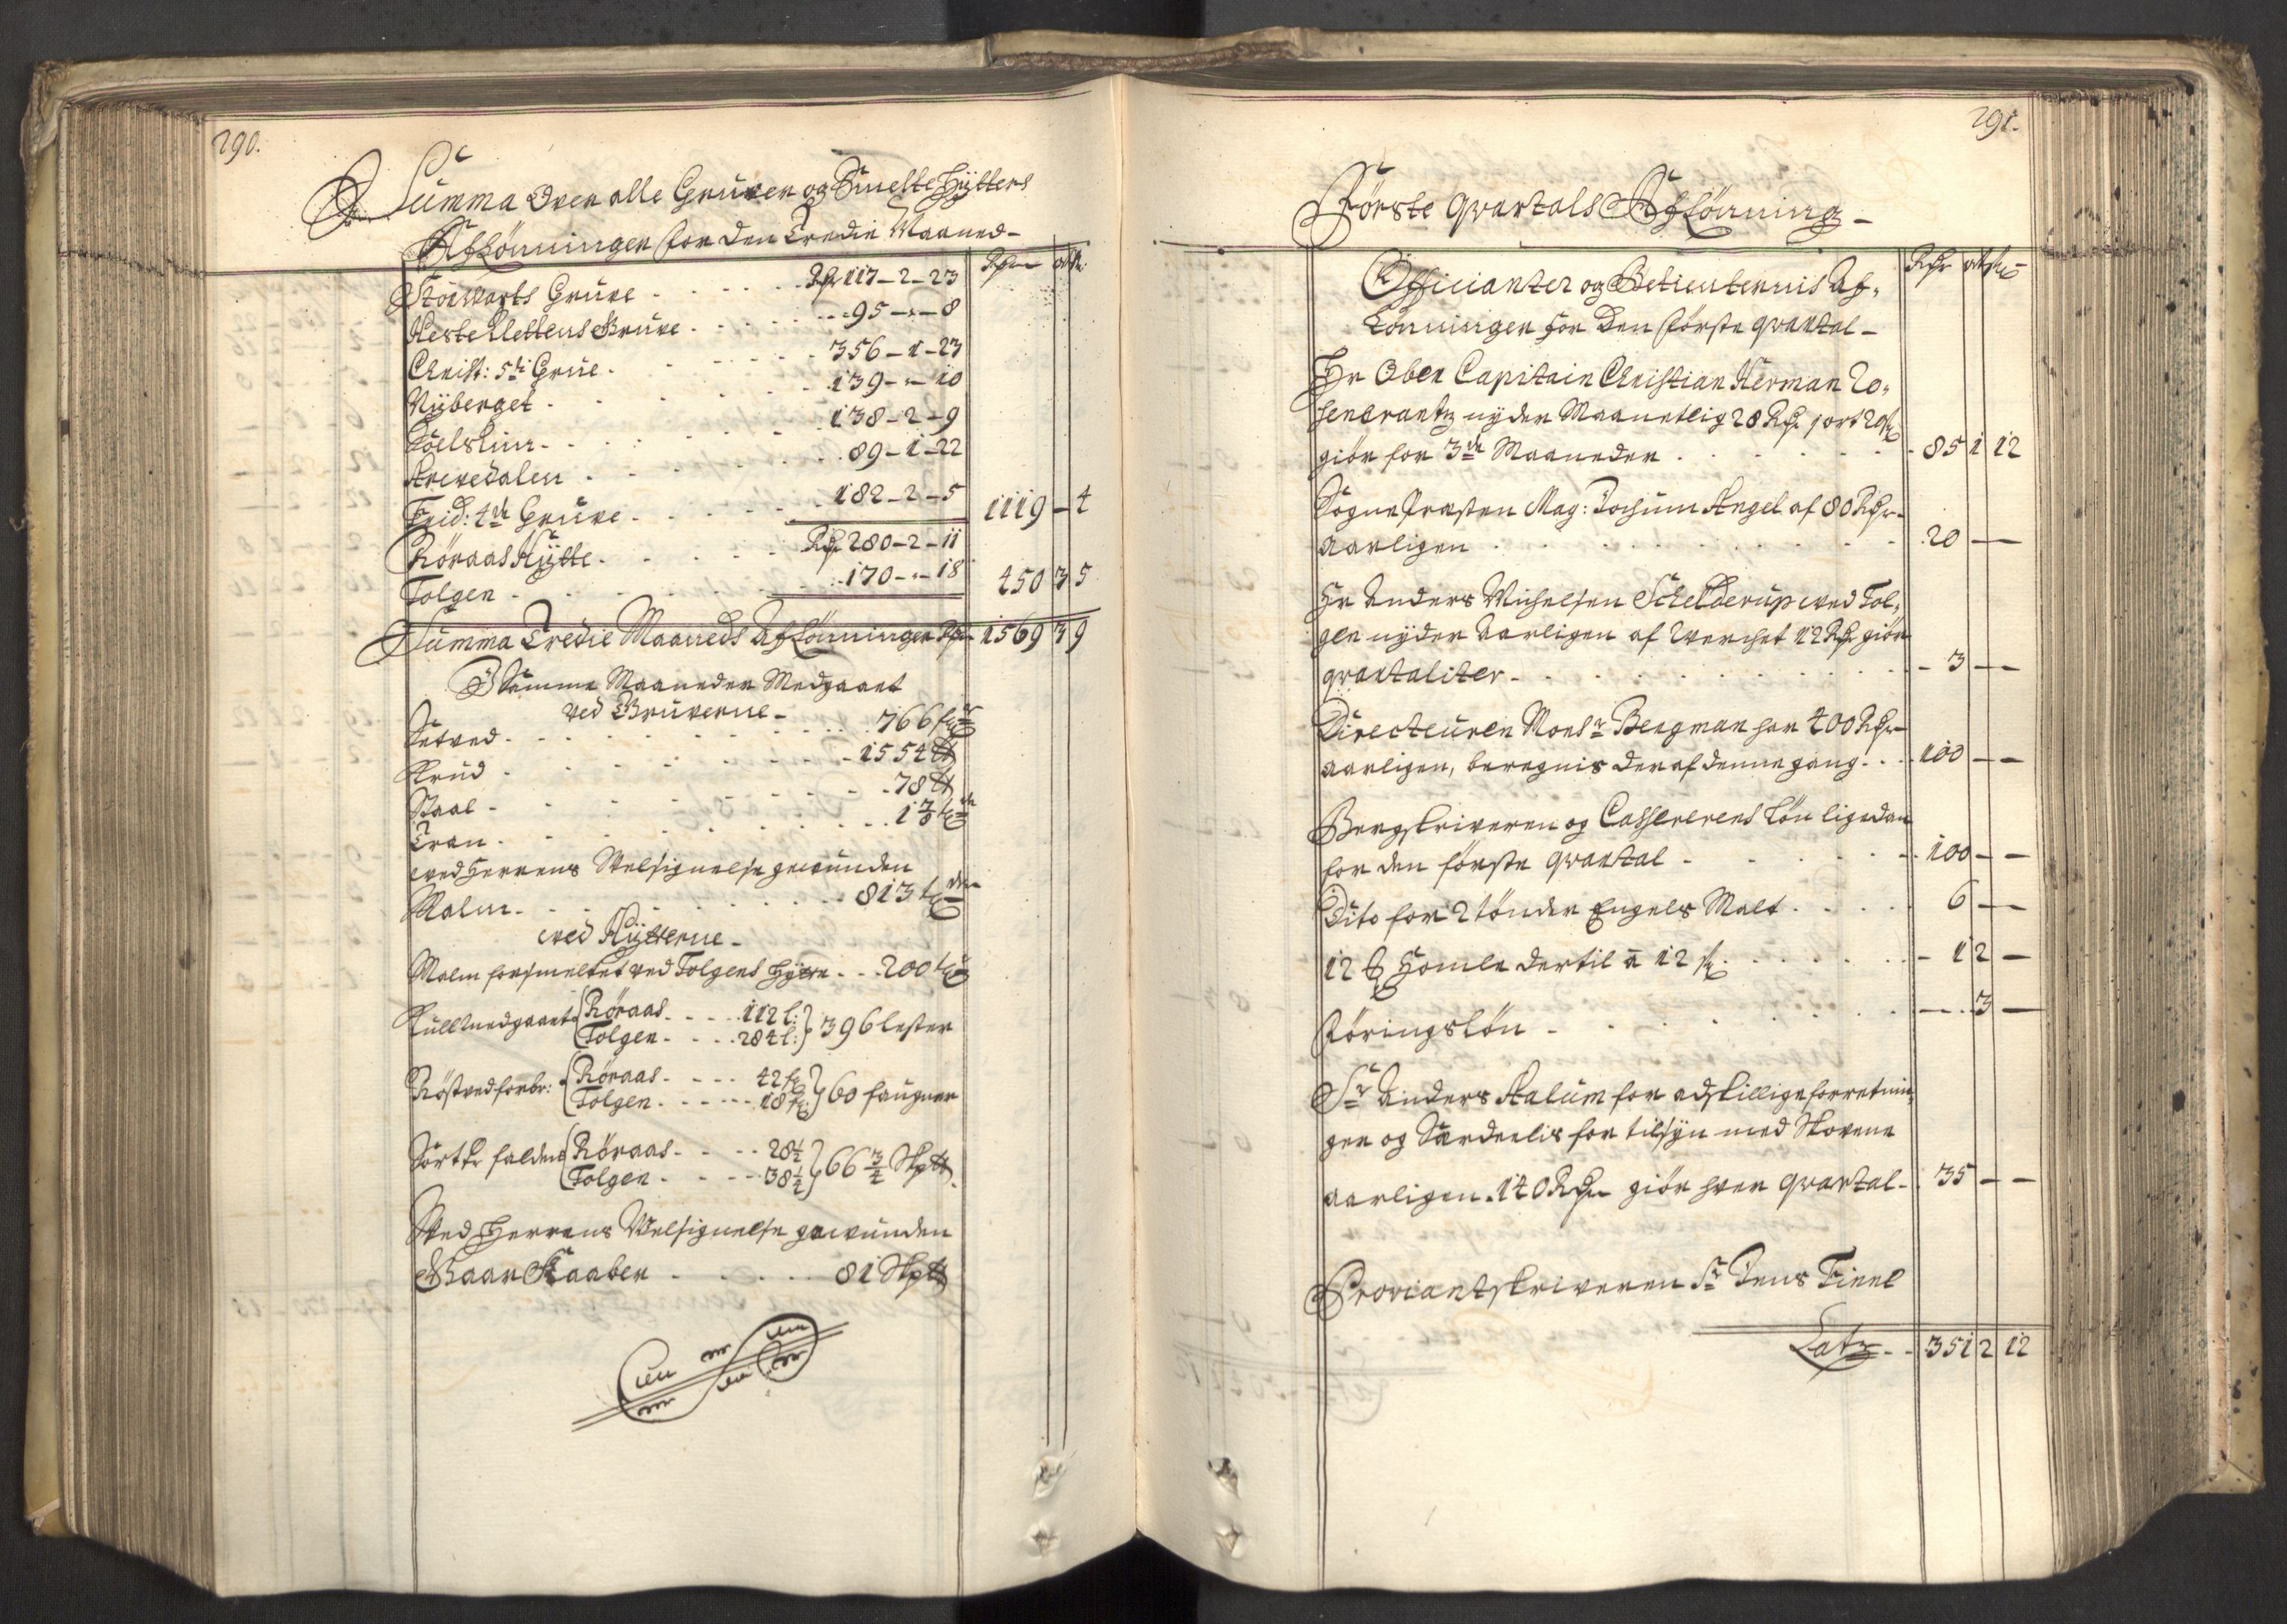 290.
Summa Over alle Gruver og Smelte Hÿtters
Aflönninger for den Tredie Maaned -
Rdr ort s:
Storwarts Gruve . . . . . Rdr 117 - 2 - 23
Heste Klettens Gruve . . . . . 95 - " - 8
Christ: 5ti Grue . . . . . 356 - 1 - 23
Nÿberget . . . . . 139 - " - 10
. . . . . 138 - 2 - 9
Arvedalen . . . . . 89 - 1 - 22
Frid: 4ti Gruve . . . . . 182 - 2 - 5 1119 - 4
Röraas Hÿtte . . . . . Rdr 280 - 2 - 11
Tolgen . . . . . 170 - " - 18 450 3 5
Summa Tredie Maaneds Aflönninger Rdr 1569 3 9
I Samme Maaneder Medgaaet
ved Gruverne -
Setved . . . . . 766 f
Krud . . . . . 1554 ℔
Staal . . . . . 78 ℔
Tran . . . . . 1 7/8 t
ved Herrens Velsignelse gewunden
Malm . . . . . 813 t
ved Hÿtterne -
Malm forsmeltet ved Tolgens Hÿtte . . 200 t
Kull medgaaet { Röraas . . . . 112 l: } 396 lester
{ Tolgen . . . . 284 l: }
Röstved forbr: { Röraas . . . . 42 f } 60 faugner
{ Tolgen . . . . 18 f: }
Sort k: falden { Röraas . . . . 28 1/4 } 66 3/4 Sk℔
{ Tolgen . . . . 38 1/2 }
Ved Herrens Velsignelse gewunden
Gaar Kaaber . . . . . 81 Sk℔
291.
Förste Qvartals Aflönning -
Rdr ort s
Officianter og Betienternis Af-
lönninger for den förste qvartal -
Hr Ober Capitain Christian Herman Ro-
sencrantz nÿder Maanetlig 28 Rdr 1 ort 20 s
giör for 3de Maaneder . . . . . 85 1 12
Sognepresten Mag: Jochum Angel af 80 Rdr
aarligen . . . . . 20 - -
Hr Anders Michelsen Schelderup ved Tol-
gen nÿder Aarligen af Verchet 12 Rdr giör
qvartaliter . . . . . 3 - -
Directeuren Monsr Bergman har 400 Rdr
aarligen, beregnis deraf denne gang . . 100 - -
Bergskriveren og Cassererens lön ligedan
for den förste qvartal . . . . . 100 - -
Dito for 2 tönder Engels Malt . . . . 6 - -
12 ℔ Homle dertil a 12 s . . . . . - 1 2 -
föringslön . . . . . - 3 -
Sr Anders Aalum for adskillige forretnin-
ger og Særdeelis for tilsÿn med Skovene
aarligen 140 Rdr giör hver qvartal . . 35 - -
Proviantskriveren Sr Jens Finne
Latz . . 351 2 12